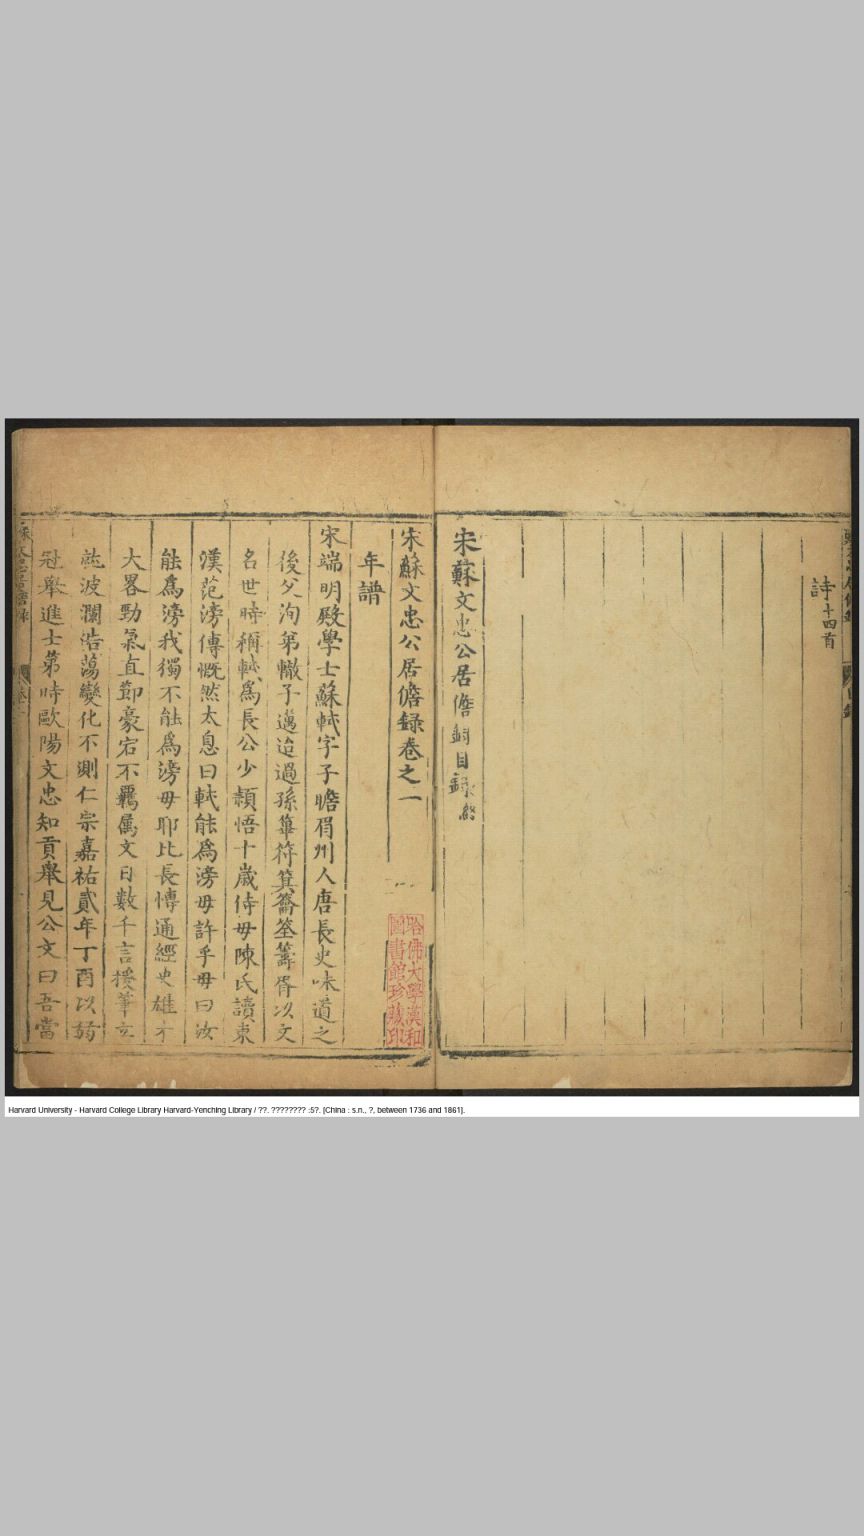 詩十四首
宋蘇文忠公居儋録目録終
宋蘇文忠公居儋録卷之一
年譜
宋端明殿學士蘇軾字子瞻眉州人唐長史味道之
後父洵弟轍子邁迨過孫簞符箕籥筌籌胥以文
名世時稱軾爲長公少頴悟十歳侍母陳氏讀東
漢范滂傳慨然太息曰軾能爲滂母許乎母曰汝
能爲滂我獨不能爲滂母耶比長愽通經史雄才
大畧勁氣直節豪宕不羈属文日數千言援筆立
就波瀾浩蕩變化不測仁宗嘉祐貳年丁酉以弱
冠舉進士第時歐陽文忠知貢舉見公文曰吾當
哈佛大學漢和
圖書館珍藏印
Harvard University - Harvard College Library Harvard-Yenching Library / ??. ???????? :5?. [China : s.n., ?, between 1736 and 1861].